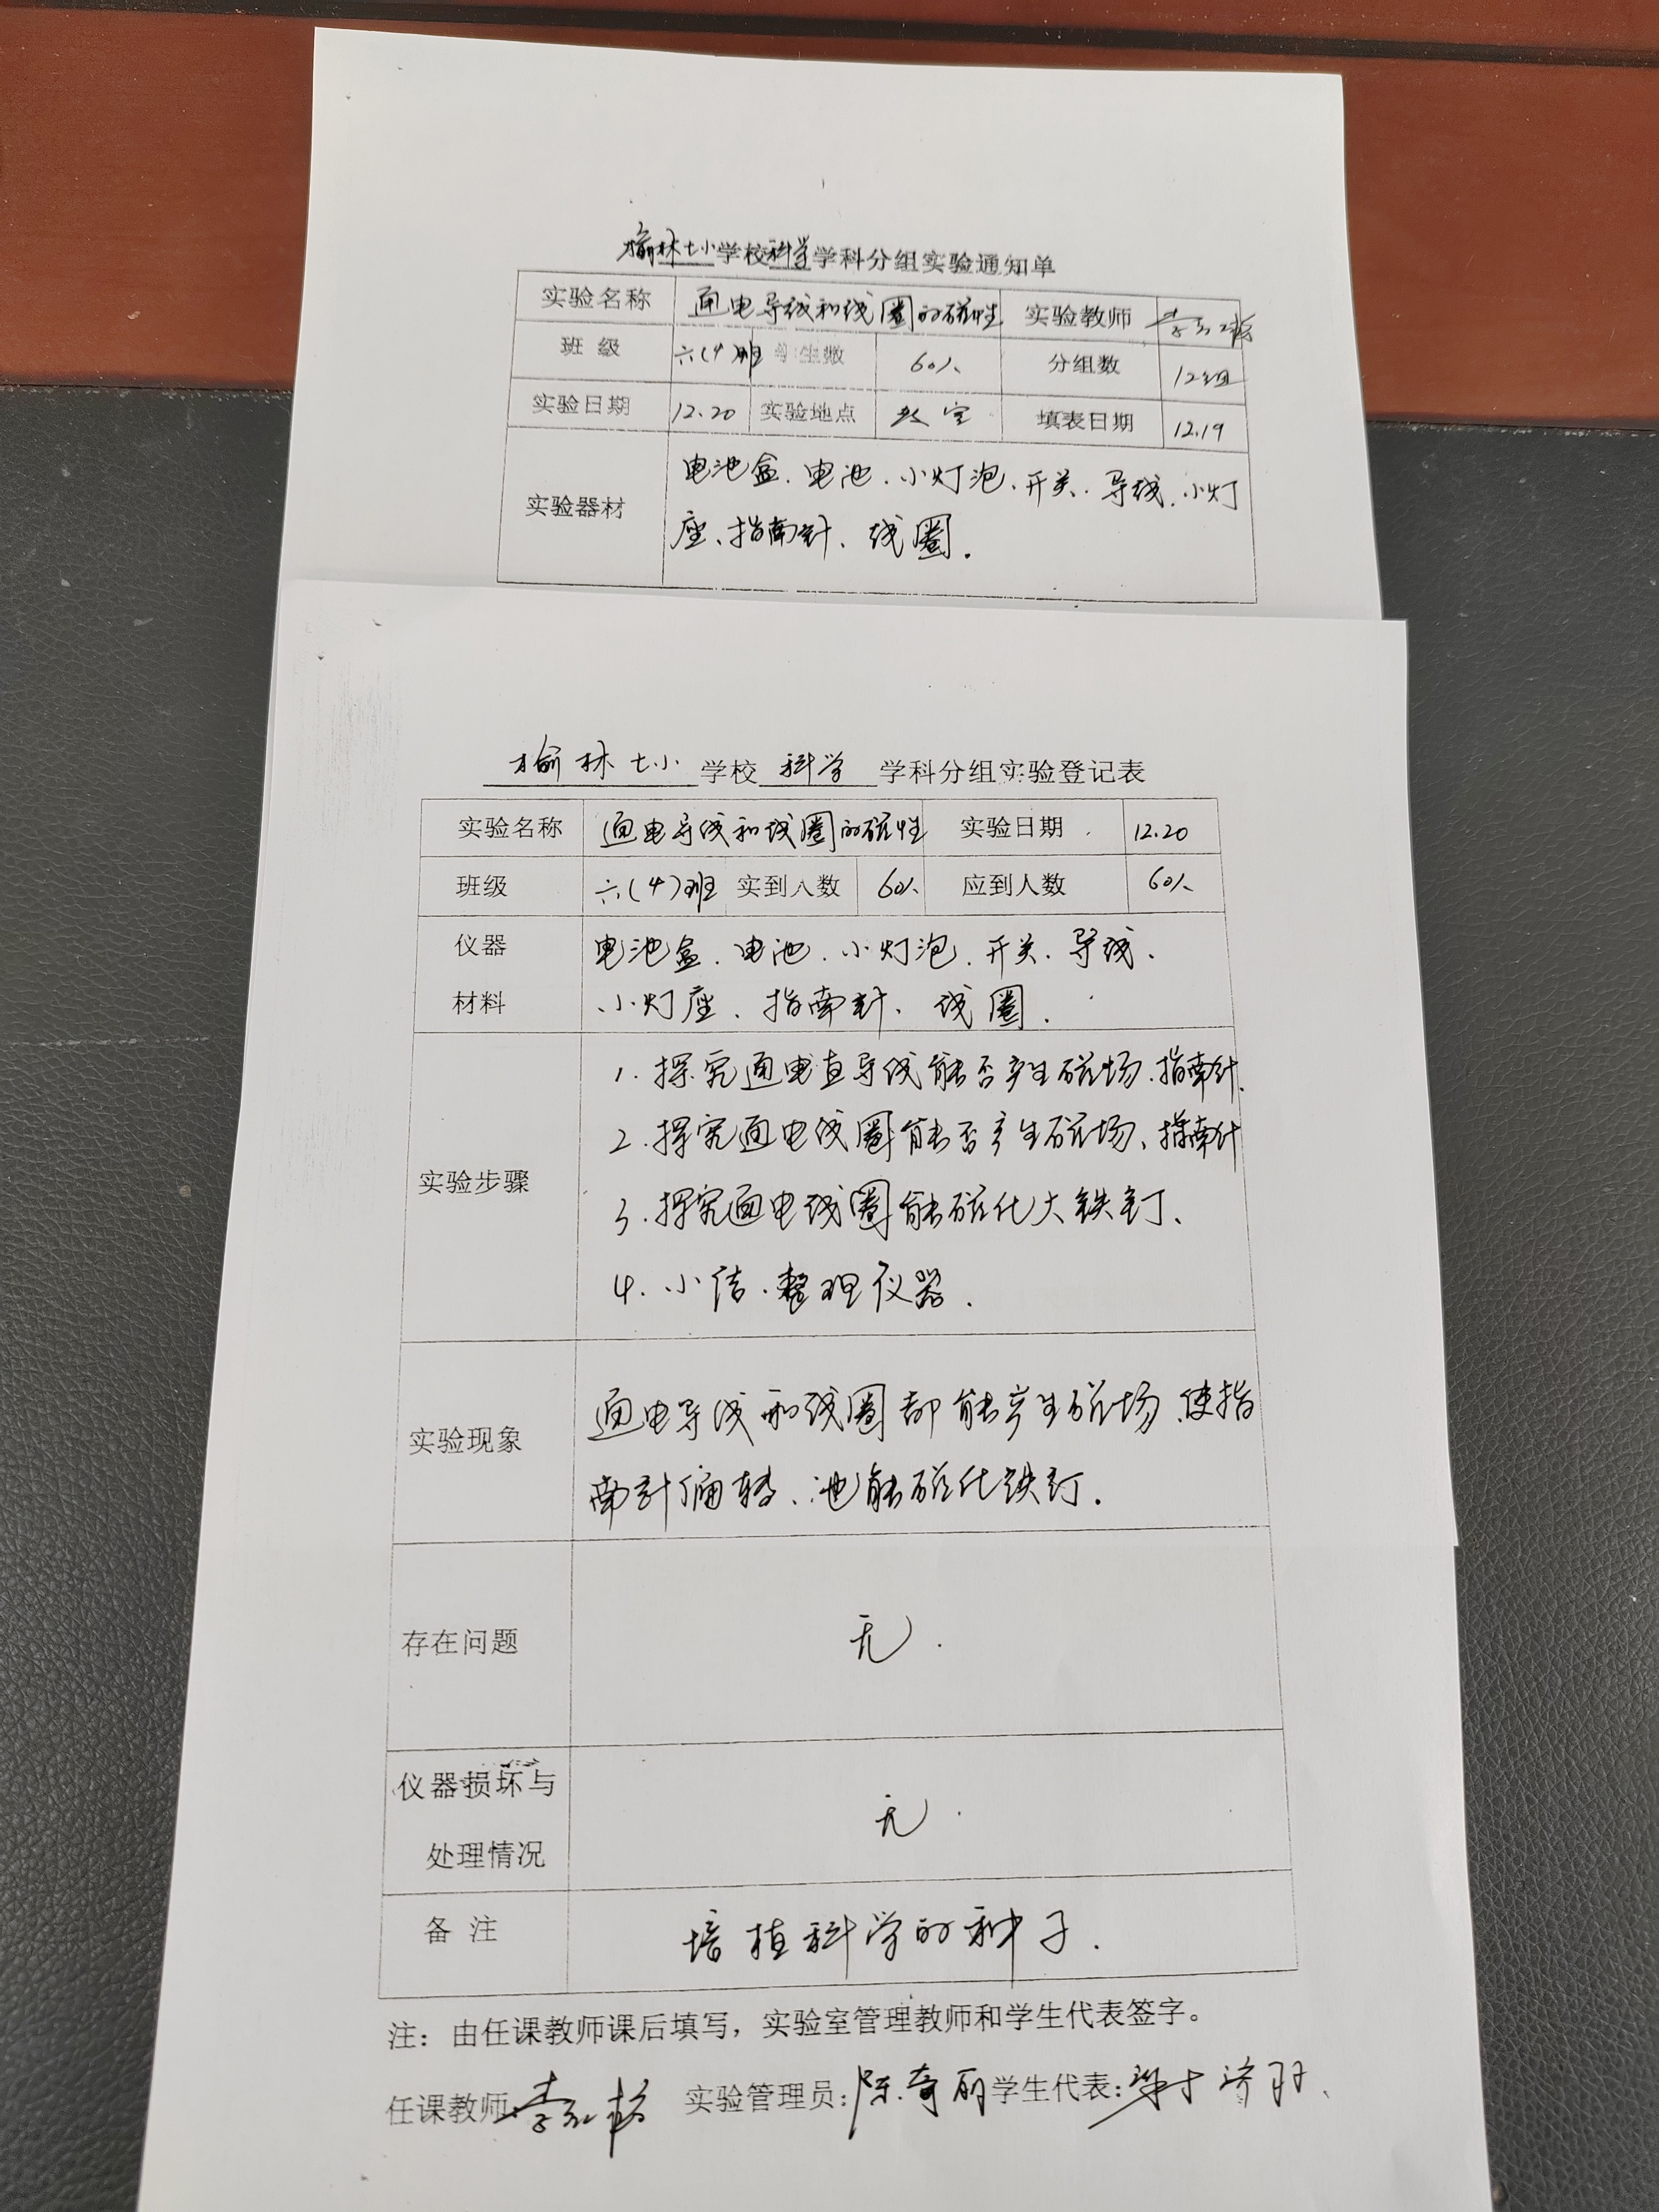 榆林七小学校科学学科分组实验通知单
实验名称 通电导线和线圈的磁性 实验教师
班 级 六(4)班 学生数 60人 分组数 12组
实验日期 12.20 实验地点 教室 填表日期 12.19
实验器材 电池盒、电池、小灯泡、开关、导线、小灯
座、指南针、线圈.
榆林七小 学校 科学 学科分组实验登记表
实验名称 通电导线和线圈的磁性 实验日期 12.20
班级 六(4)班 实到人数 60人 应到人数 60人
仪器 电池盒、电池、小灯泡、开关、导线、
材料 小灯座、指南针、线圈.
实验步骤
1.探究通电直导线能否产生磁场、指南针、
2.探究通电线圈能否产生磁场、指南针
3.探究通电线圈能磁化大铁钉、
4.小结、整理仪器.
实验现象
通电导线和线圈都能产生磁场、使指
南针偏转、也能磁化铁钉.
存在问题 无.
仪器损坏与 无.
处理情况
备 注 培植科学的种子.
注：由任课教师课后填写，实验室管理教师和学生代表签字。
任课教师: 实验管理员:陈奇丽 学生代表: